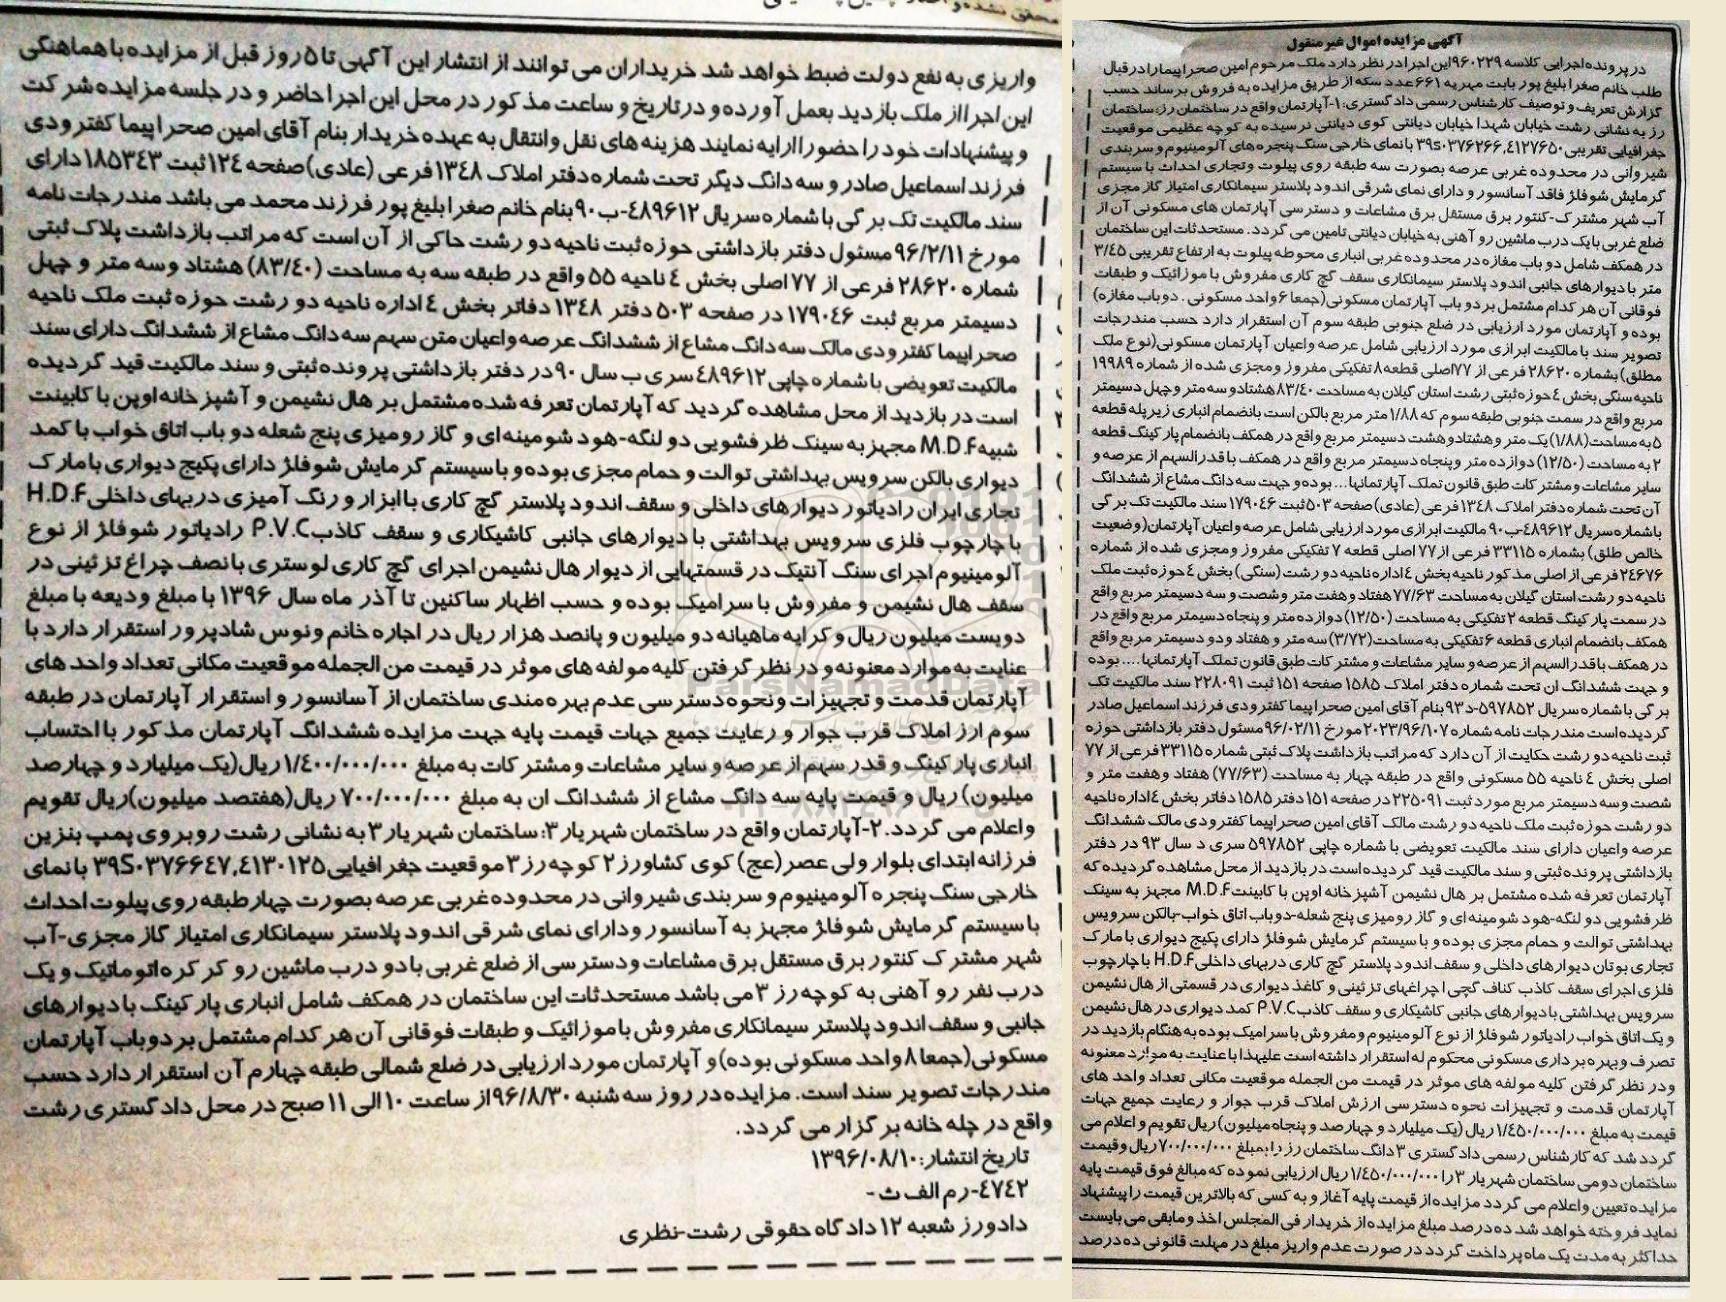 آگهی مزایده اموال غیرمنقول
در پرونده اجرایی کلاسه ۹۶۰۲۲۹ این اجرا در نظر دارد ملک مرحوم امین صحرا پیما را در قبال
طلب خانم صغرا بلیغ پور بابت مهریه ۶۶۱ عدد سکه از طریق مزایده به فروش برساند حسب
گزارش تعریف و توصیف کارشناس رسمی دادگستری: ۱-آپارتمان واقع در ساختمان رز: ساختمان
رز به نشانی رشت خیابان شهدا خیابان دیانتی کوی دیانتی نرسیده به کوچه عظیمی موقعیت
جغرافیایی تقریبی ۳۹S۰۳۷۶۲۶۶,۴۱۲۷۶۵۰ با نمای خارجی سنگ پنجره های آلومینیوم و سربندی
شیروانی در محدوده غربی عرصه بصورت سه طبقه روی پیلوت و تجاری احداث با سیستم
گرمایش شوفلژ فاقد آسانسور و دارای نمای شرقی اندود پلاستر سیمانکاری امتیاز گاز مجزی
آب شهر مشترک-کنتور برق مستقل برق مشاعات و دسترسی آپارتمان های مسکونی آن از
ضلع غربی با یک درب ماشین رو آهنی به خیابان دیانتی تامین می گردد. مستحدثات این ساختمان
در همکف شامل دو باب مغازه در محدوده غربی انباری محوطه پیلوت به ارتفاع تقریبی ۳/۴۵
متر با دیوارهای جانبی اندود پلاستر سیمانکاری سقف گچ کاری مفروش با موزائیک و طبقات
فوقانی آن هر کدام مشتمل بر دو باب آپارتمان مسکونی(جمعا ۶ واحد مسکونی. دو باب مغازه)
بوده و آپارتمان مورد ارزیابی در ضلع جنوبی طبقه سوم آن استقرار دارد حسب مندرجات
تصویر سند با مالکیت ابرازی مورد ارزیابی شامل عرصه واعیان آپارتمان مسکونی(نوع ملک
مطلق) بشماره ۲۸۶۲۰ فرعی از ۷۷اصلی قطعه۸ تفکیکی مفروز ومجزی شده از شماره ۱۹۹۸۹
ناحیه سنگی بخش ۴ حوزه ثبتی رشت استان گیلان به مساحت ۸۳/۴۰ هشتادو سه متر و چهل دسیمتر
مربع واقع در سمت جنوبی طبقه سوم که ۱/۸۸ متر مربع بالکن است بانضمام انباری زیرپله قطعه
۵ به مساحت(۱/۸۸) یک متر وهشتادوهشت دسیمتر مربع واقع در همکف بانضمام پارکینگ قطعه
۲ به مساحت (۱۲/۵۰) دوازده متر وپنجاه دسیمتر مربع واقع در همکف با قدرالسهم از عرصه و
سایر مشاعات ومشترکات طبق قانون تملک آپارتمانها... بوده و جهت سه دانگ مشاع از ششدانگ
آن تحت شماره دفتر املاک ۱۳۴۸ فرعی (عادی) صفحه ۵۰۳ ثبت ۱۷۹۰۴۶ سند مالکیت تک برگی
باشماره سریال ۴۸۹۶۱۲-ب ۹۰ مالکیت ابرازی مورد ارزیابی شامل عرصه واعیان آپارتمان(وضعیت
خالص طلق) بشماره ۳۳۱۱۵ فرعی از ۷۷ اصلی قطعه ۷ تفکیکی مفروز ومجزی شده از شماره
۲۴۶۷۶ فرعی از اصلی مذکور ناحیه بخش ۴ اداره ناحیه دو رشت (سنگی) بخش ۴ حوزه ثبت ملک
ناحیه دو رشت استان گیلان به مساحت ۷۷/۶۳ هفتاد وهفت متر و شصت و سه دسیمتر مربع واقع
در سمت پارکینگ قطعه ۲ تفکیکی به مساحت (۱۲/۵۰) دوازده متر و پنجاه دسیمتر مربع واقع در
همکف بانضمام انباری قطعه ۶ تفکیکی به مساحت(۳/۷۲) سه متر و هفتاد ودو دسیمتر مربع واقع
در همکف با قدرالسهم از عرصه و سایر مشاعات و مشترکات طبق قانون تملک آپارتمانها.... بوده
و جهت ششدانگ ان تحت شماره دفتر املاک ۱۵۸۵ صفحه ۱۵۱ ثبت ۲۲۸۰۹۱ سند مالکیت تک
برگی با شماره سریال ۵۹۷۸۵۲-د۹۳ بنام آقای امین صحرا پیما کفترودی فرزند اسماعیل صادر
گردیده است مندرجات نامه شماره ۲۰۲۳/۹۶/۱۰۷ مورخ ۹۶/۰۲/۱۱ مسئول دفتر بازداشتی حوزه
ثبت ناحیه دو رشت حکایت از آن دارد که مراتب بازداشت پلاک ثبتی شماره ۳۳۱۱۵ فرعی از ۷۷
اصلی بخش ۴ ناحیه ۵۵ مسکونی واقع در طبقه چهار به مساحت (۷۷/۶۳) هفتاد وهفت متر و
شصت وسه دسیمتر مربع مورد ثبت ۲۲۵۰۹۱ در صفحه ۱۵۱ دفتر ۱۵۸۵ دفاتر بخش ۴ اداره ناحیه
دو رشت حوزه ثبت ملک ناحیه دو رشت مالک آقای امین صحرا پیما کفترودی مالک ششدانگ
عرصه واعیان دارای سند مالکیت تعویضی با شماره چاپی ۵۹۷۸۵۲ سری د سال ۹۳ در دفتر
بازداشتی پرونده ثبتی و سند مالکیت قید گردیده است در بازدید از محل مشاهده گردیده که
آپارتمان تعرفه شده مشتمل بر هال نشیمن آشپزخانه اوپن با کابینت M.D.F مجهز به سینک
ظرفشویی دو لنگه-هود شومینه ای و گاز رومیزی پنج شعله-دوباب اتاق خواب-بالکن سرویس
بهداشتی توالت و حمام مجزی بوده و با سیستم گرمایش شوفلژ دارای پکیج دیواری با مارک
تجاری بوتان دیوارهای داخلی و سقف اندود پلاستر گچ کاری دربهای داخلی H.D.F با چارچوب
فلزی اجرای سقف کاذب کناف گچی اچراغهای تزئینی و کاغذ دیواری در قسمتی از هال نشیمن
سرویس بهداشتی با دیوارهای جانبی کاشیکاری و سقف کاذب P.V.C کمد دیواری در هال نشیمن
و یک اتاق خواب رادیاتور شوفلژ از نوع آلومینیوم ومفروش با سرامیک بوده به هنگام بازدید در
تصرف وبهره برداری مسکونی محکوم له استقرار داشته است علیهذا با عنایت به موارد معنونه
ودر نظر گرفتن کلیه مولفه های موثر در قیمت من الجمله موقعیت مکانی تعداد واحد های
آپارتمان قدمت و تجهیزات نحوه دسترسی ارزش املاک قرب جوار و رعایت جمیع جهات
قیمت به مبلغ ۱/۴۵۰/۰۰۰/۰۰۰ ریال (یک میلیارد و چهارصد و پنجاه میلیون) ریال تقویم و اعلام می
گردد شد که کارشناس رسمی دادگستری ۳ دانگ ساختمان رز را بمبلغ ۷۰۰/۰۰۰/۰۰۰ ریال وقیمت
ساختمان دومی ساختمان شهریار ۳ را ۱/۴۵۰/۰۰۰/۰۰۰ ریال ارزیابی نموده که مبالغ فوق قیمت پایه
مزایده تعیین واعلام می گردد مزایده از قیمت پایه آغاز و به کسی که بالاترین قیمت را پیشنهاد
نماید فروخته خواهد شد ده درصد مبلغ مزایده از خریدار فی المجلس اخذ و مابقی می بایست
حداکثر به مدت یک ماه پرداخت گردد در صورت عدم واریز مبلغ در مهلت قانونی ده درصد
واریزی به نفع دولت ضبط خواهد شد خریداران می توانند از انتشار این آگهی تا ۵ روز قبل از مزایده با هماهنگی
این اجرا از ملک بازدید بعمل آورده و در تاریخ و ساعت مذکور در محل این اجرا حاضر و در جلسه مزایده شرکت
و پیشنهادات خود را حضورا ارایه نمایند هزینه های نقل وانتقال به عهده خریدار بنام آقای امین صحرا پیما کفترودی
فرزند اسماعیل صادر و سه دانگ دیگر تحت شماره دفتر املاک ۱۳۴۸ فرعی (عادی) صفحه ۱۲۴ ثبت ۱۸۵۳۴۳ دارای
سند مالکیت تک برگی با شماره سریال ۴۸۹۶۱۲-ب ۹۰ بنام خانم صغرا بلیغ پور فرزند محمد می باشد مندرجات نامه
مورخ ۹۶/۲/۱۱ مسئول دفتر بازداشتی حوزه ثبت ناحیه دو رشت حاکی از آن است که مراتب بازداشت پلاک ثبتی
شماره ۲۸۶۲۰ فرعی از ۷۷ اصلی بخش ۴ ناحیه ۵۵ واقع در طبقه سه به مساحت (۸۳/۴۰) هشتاد وسه متر و چهل
دسیمتر مربع ثبت ۱۷۹۰۴۶ در صفحه ۵۰۳ دفتر ۱۳۴۸ دفاتر بخش ۴ اداره ناحیه دو رشت حوزه ثبت ملک ناحیه
صحرا پیما کفترودی مالک سه دانگ مشاع از ششدانگ عرصه واعیان متن سهم سه دانگ مشاع از ششدانگ دارای سند
مالکیت تعویضی با شماره چاپی ۴۸۹۶۱۲ سری ب سال ۹۰ در دفتر بازداشتی پرونده ثبتی و سند مالکیت قید گردیده
است در بازدید از محل مشاهده گردید که آپارتمان تعرفه شده مشتمل بر هال نشیمن و آشپزخانه اوپن با کابینت
شبیه M.D.F مجهز به سینک ظرفشویی دو لنگه-هود شومینه ای و گاز رومیزی پنج شعله دو باب اتاق خواب با کمد
دیواری بالکن سرویس بهداشتی توالت و حمام مجزی بوده و با سیستم گرمایش شوفلژ دارای پکیج دیواری با مارک
تجاری ایران رادیاتور دیوارهای داخلی و سقف اندود پلاستر گچ کاری با ابزار و رنگ آمیزی دربهای داخلی H.D.F
با چارچوب فلزی سرویس بهداشتی با دیوارهای جانبی کاشیکاری و سقف کاذب P.V.C رادیاتور شوفلژ از نوع
آلومینیوم اجرای سنگ آنتیک در قسمتهایی از دیوار هال نشیمن اجرای گچ کاری لوستری با نصف چراغ تزئینی در
سقف هال نشیمن و مفروش با سرامیک بوده و حسب اظهار ساکنین تا آذر ماه سال ۱۳۹۶ با مبلغ ودیعه با مبلغ
دویست میلیون ریال و کرایه ماهیانه دو میلیون و پانصد هزار ریال در اجاره خانم ونوس شادپرور استقرار دارد با
عنایت به موارد معنونه و در نظر گرفتن کلیه مولفه های موثر در قیمت من الجمله موقعیت مکانی تعداد واحد های
آپارتمان قدمت و تجهیزات ونحوه دسترسی عدم بهره مندی ساختمان از آسانسور و استقرار آپارتمان در طبقه
سوم ارز املاک قرب جوار و رعایت جمیع جهات قیمت پایه جهت مزایده ششدانگ آپارتمان مذکور با احتساب
انباری پارکینگ و قدر سهم از عرصه و سایر مشاعات و مشترکات به مبلغ ۱/۴۰۰/۰۰۰/۰۰۰ ریال(یک میلیارد و چهارصد
میلیون) ریال و قیمت پایه سه دانگ مشاع از ششدانگ ان به مبلغ ۷۰۰/۰۰۰/۰۰۰ ریال(هفتصد میلیون)ریال تقویم
واعلام می گردد. ۲-آپارتمان واقع در ساختمان شهریار ۳: ساختمان شهریار ۳ به نشانی رشت روبروی پمپ بنزین
فرزانه ابتدای بلوار ولی عصر(عج) کوی کشاورز ۲ کوچه رز ۳ موقعیت جغرافیایی ۳۹S۰۳۷۶۶۴۷,۴۱۳۰۱۲۵ با نمای
خارجی سنگ پنجره آلومینیوم و سربندی شیروانی در محدوده غربی عرصه بصورت چهار طبقه روی پیلوت احداث
با سیستم گرمایش شوفلژ مجهز به آسانسور ودارای نمای شرقی اندود پلاستر سیمانکاری امتیاز گاز مجزی-آب
شهر مشترک کنتور برق مستقل برق مشاعات ودسترسی از ضلع غربی با دو درب ماشین رو کرکره اتوماتیک و یک
درب نفر رو آهنی به کوچه رز ۳ می باشد مستحدثات این ساختمان در همکف شامل انباری پارکینگ با دیوارهای
جانبی و سقف اندود پلاستر سیمانکاری مفروش با موزائیک و طبقات فوقانی آن هر کدام مشتمل بر دو باب آپارتمان
مسکونی(جمعا ۸ واحد مسکونی بوده) و آپارتمان مورد ارزیابی در ضلع شمالی طبقه چهارم آن استقرار دارد حسب
مندرجات تصویر سند است. مزایده در روز سه شنبه ۹۶/۸/۳۰ از ساعت ۱۰ الی ۱۱ صبح در محل دادگستری رشت
واقع در چله خانه برگزار می گردد.
تاریخ انتشار: ۱۳۹۶/۰۸/۱۰
۴۷۴۲-رم الف ث -
دادورز شعبه ۱۲ دادگاه حقوقی رشت-نظری
ParsNamadData